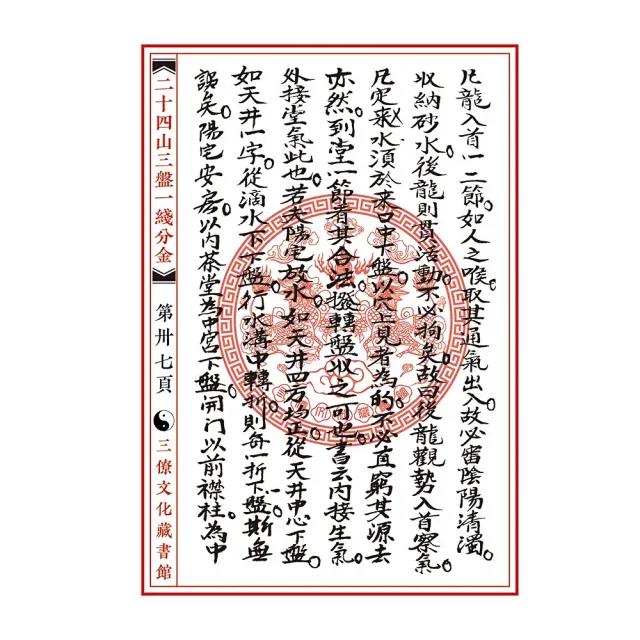 凡龍入首一二節。如人之喉。取其通氣出入。故必審陰陽清濁。
收納砂水。後龍則貫活動。不必拘矣。故曰後龍觀勢。入首察氣。
凡定來水。須於來口中下盤。以穴上見者為的。不必直窮其源。去
亦然。到堂一節。看其合法。撥轉盤收之可也。書云。內接生氣。
外接堂氣。此也。若夫陽宅放水。如天井四方均正。從天井中心下盤。
如天井一字。從滴水下下盤。行水溝中轉折。則每一折下一盤。斯無
誤矣。陽宅安房。以內茶堂為中宮下盤。開門以前襟柱為中
二十四山三盤一綫分金
第卅七頁
三僚文化藏書館